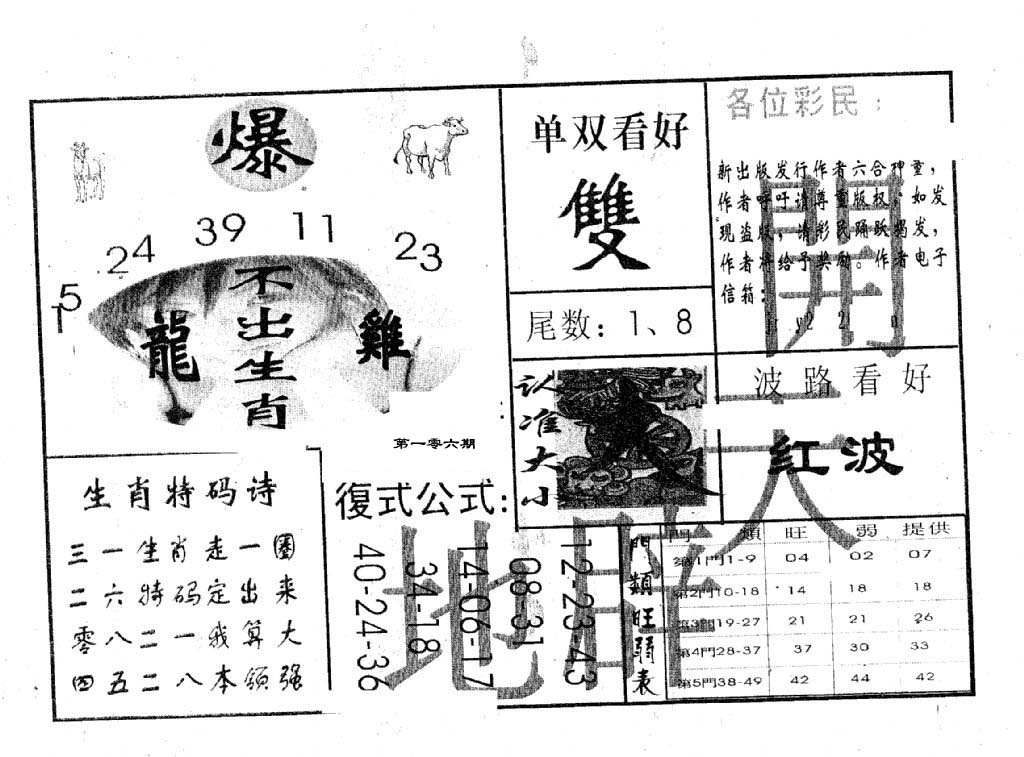 爆
24 39 11 23
15
不出生肖
龍
雞
第一零六期
单双看好
雙
尾数：1、8
各位彩民：
新出版发行作者六合神童，
作者呼吁请尊重版权，如发
现盗版，请彩民踊跃揭发，
作者将给予奖励。作者电子
信箱：
开
認准大小
波路看好
红波
生肖特码诗
三一生肖走一圈
二六特码定出来
零八二一我算大
四五二八本领强
復式公式：
12-23-43
08-31
14-06-17
34-18
40-24-36
地
門類旺弱表
門 類 旺 弱 提供
第1門1-9 04 02 07
第2門10-18 14 18 18
第3門19-27 21 21 26
第4門28-37 37 30 33
第5門38-49 42 44 42